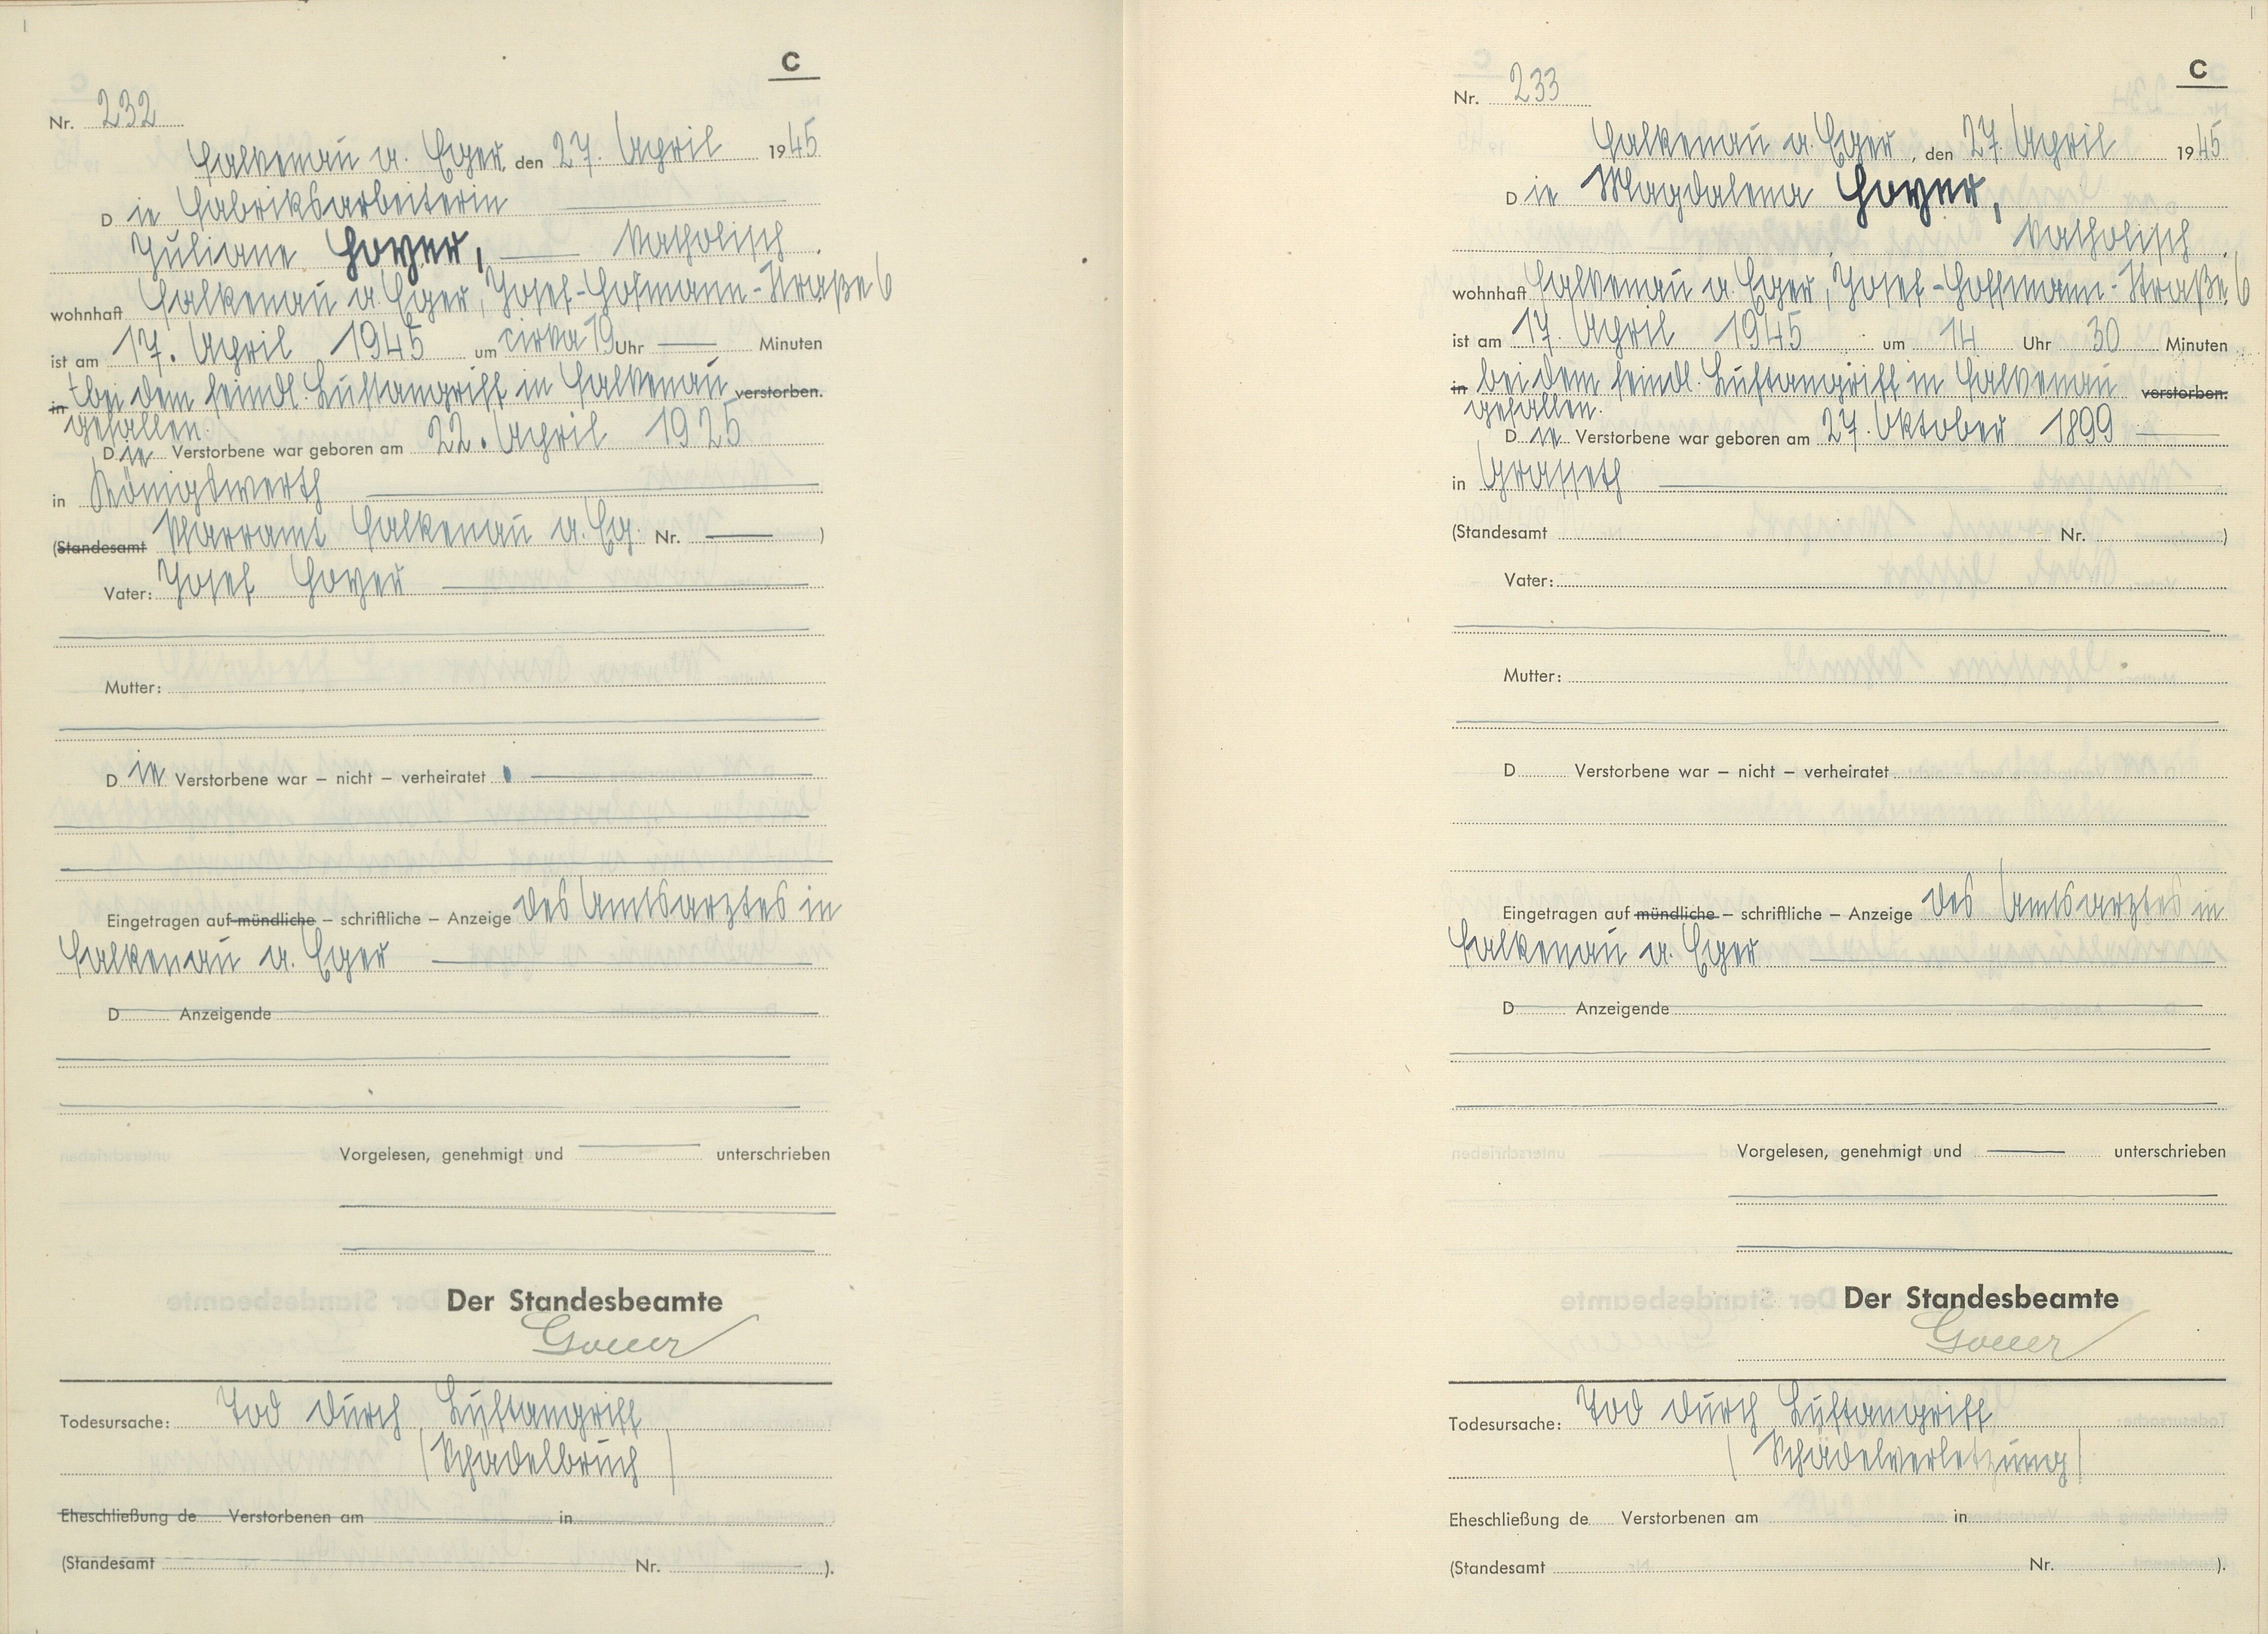 C
Nr. 232
Falkenau a. Eger, den 27. April 1945
Die Fabriksarbeiterin
Juliane Hoyer, katholisch
wohnhaft Falkenau a. Eger, Josef-Hofmann-Straße 6
ist am 17. April 1945 um cirka 19 Uhr — Minuten
in bei dem feindl. Luftangriff in Falkenau verstorben.
gefallen.
Die Verstorbene war geboren am 22. April 1925
in Königswerth
(Standesamt Pfarramt Falkenau a. Eg. Nr. — )
Vater: Josef Hoyer
Mutter:
Die Verstorbene war – nicht – verheiratet
Eingetragen auf mündliche – schriftliche – Anzeige des Amtsarztes in
Falkenau a. Eger
D Anzeigende
Vorgelesen, genehmigt und — unterschrieben
Der Standesbeamte
Todesursache: Tod durch Luftangriff
(Schädelbruch)
Eheschließung de Verstorbenen am in
(Standesamt Nr. ).
C
Nr. 233
Falkenau a. Eger, den 27. April 1945
Die Magdalena Hoyer,
katholisch
wohnhaft Falkenau a. Eger, Josef-Hoffmann-Straße 6
ist am 17. April 1945 um 14 Uhr 30 Minuten
in bei dem feindl. Luftangriff in Falkenau verstorben.
gefallen.
Die Verstorbene war geboren am 27. Oktober 1899 —
in Grasseth
(Standesamt Nr. )
Vater:
Mutter:
D Verstorbene war – nicht – verheiratet
Eingetragen auf mündliche – schriftliche – Anzeige des Amtsarztes in
Falkenau a. Eger
D Anzeigende
Vorgelesen, genehmigt und — unterschrieben
Der Standesbeamte
Todesursache: Tod durch Luftangriff
(Schädelverletzung)
Eheschließung de Verstorbenen am in
(Standesamt Nr. ).